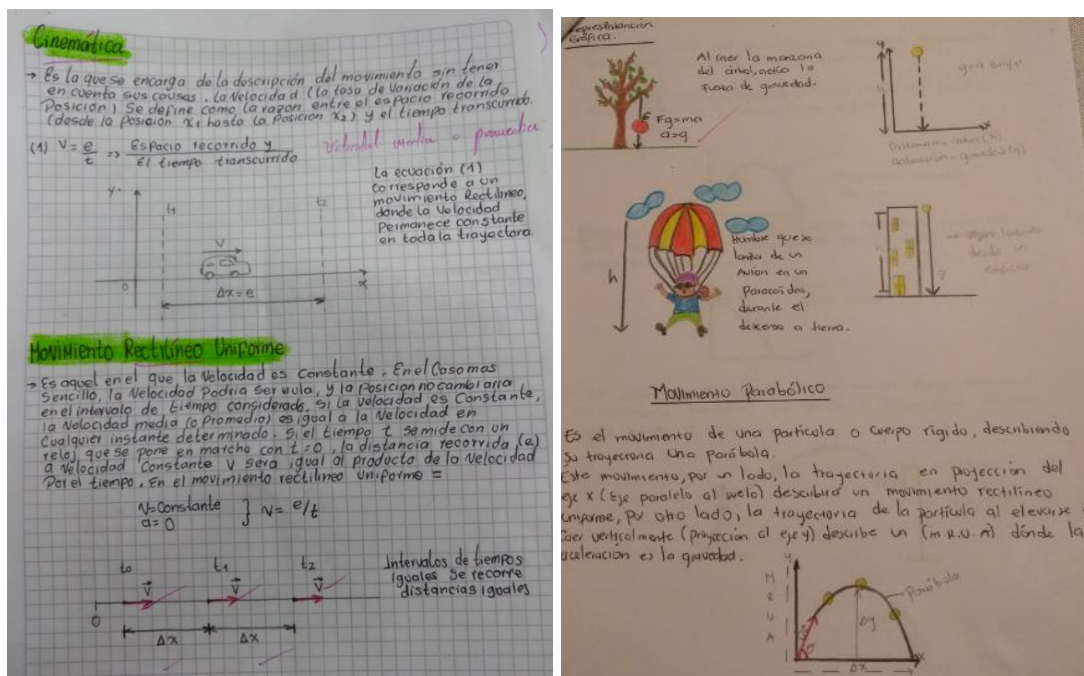 Cinemática
→ Es la que se encarga de la descripción del movimiento sin tener
en cuenta sus causas. La velocidad (la tasa de variación de la
Posición) Se define como la razon entre el espacio recorrido
(desde la Posición x1 hasta la Posición x2) y el tiempo transcurrido.
(1) V = e/t => Espacio recorrido y / El tiempo transcurrido
Velocidad media = promedica
La ecuación (1)
corresponde a un
movimiento Rectilineo,
donde la Velocidad
Permanece constante
en toda la trayectora.
y
t1
t2
V
0
x
Δx=e
Movimiento Rectilíneo Uniforme
→ Es aquel en el que la Velocidad es Constante. En el Caso mas
Sencillo, la Velocidad Podria Ser nula, y la Posicion no cambiaria
en el intervalo de tiempo considerado. Si la Velocidad es Constante,
la Velocidad media (o Promedio) es igual a la Velocidad en
Cualquier instante determinado. Si el tiempo t se mide con un
reloj que se pone en marcha con t=0, la distancia recorrida (e)
a Velocidad Constante V sera igual al producto de la Velocidad
Por el tiempo. En el movimiento rectilineo Uniforme =
V=Constante
a=0
} V= e/t
t0 t1 t2
V V V
0
Δx Δx
Intervalos de tiempos
iguales Se recorre
distancias iguales
Representancion
Gráfica.
Al caer la manzana
del árbol, actúa la
Fuerza de gravedad.
Fg=ma
a=g
y
x
h
Hombre que se
lanza de un
Avión en un
Paracaidas,
durante el
descenso a tierra.
desde un
edificio
Movimiento Parabólico
Es el movimiento de una partícula o cuerpo rígido, describiendo
su trayectoria una parábola.
Este movimiento, por un lado, la trayectoria en proyección del
eje x (Eje paralelo al suelo) describirá un movimiento rectilíneo
uniforme, por otro lado, la trayectoria de la partícula al elevarse
caer verticalmente (proyección al eje y) describe un (m.R.U.A) dónde la
aceleración es la gravedad.
y
M
R
U
A
Parábola
Δy
θ
x
Δx